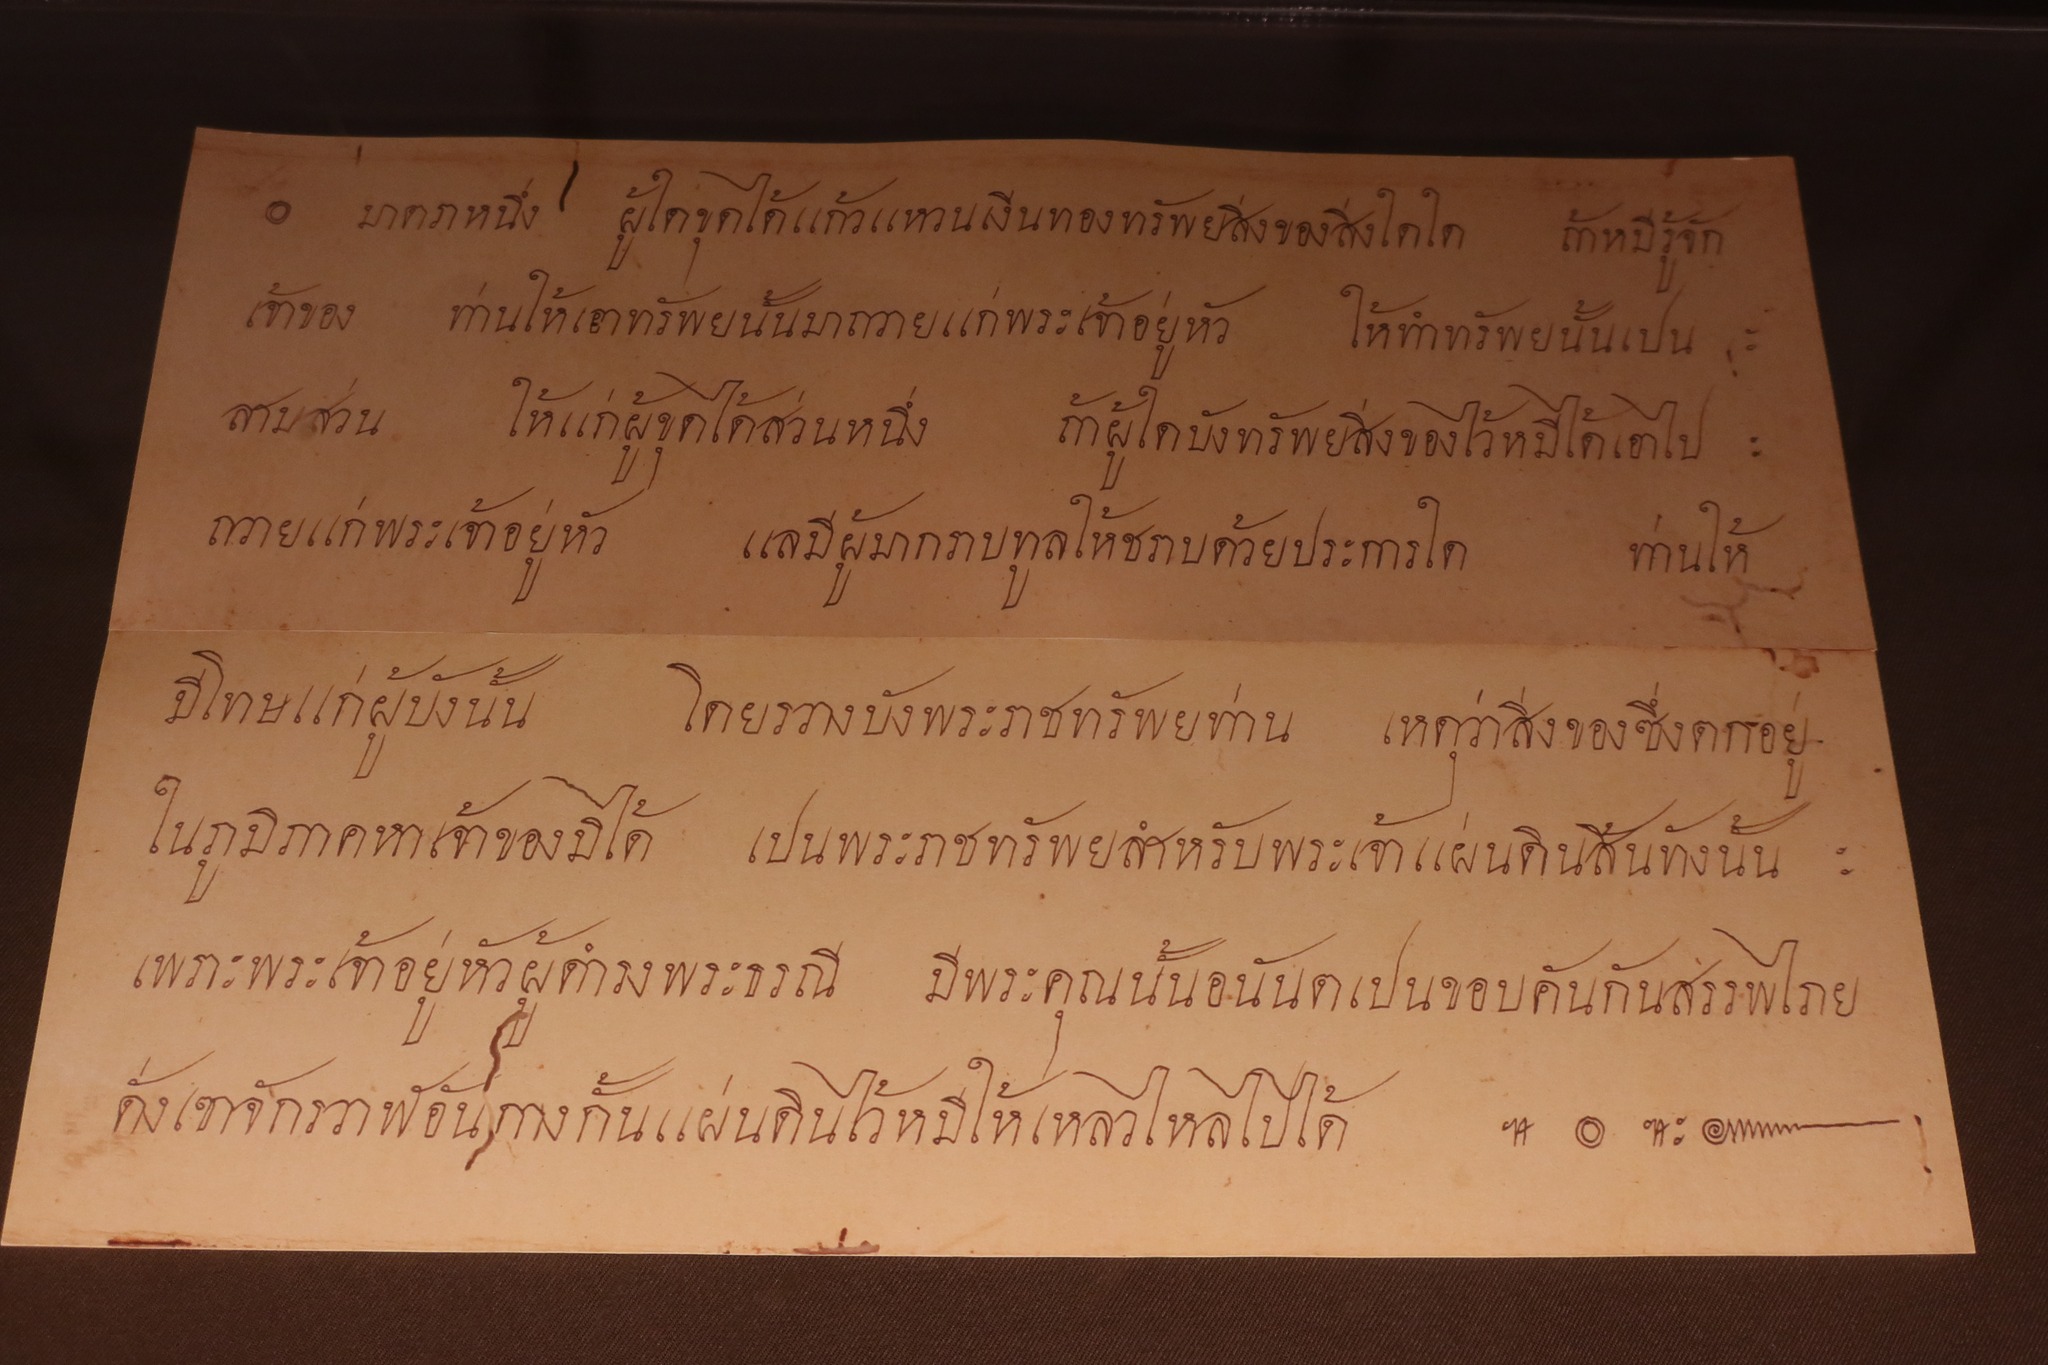 ๏ มาตราหนึ่ง ผู้ใดขุดได้แก้วแหวนเงีนทองทรัพยสิ่งของสิ่งใดใด ถ้าหมีรู้จัก
เจ้าของ ท่านให้เอาทรัพยนั้นมาถวายแก่พระเจ้าอยู่หัว ให้ทำทรัพยนั้นเปน ะ
สามส่วน ให้แก่ผู้ขุดได้ส่วนหนึ่ง ถ้าผู้ใดบังทรัพยสิ่งของไว้หมีได้เอาไป ะ
ถวายแก่พระเจ้าอยู่หัว แลมีผู้มากราบทูลให้ชราบด้วยประการใด ท่านให้
มีโทษแก่ผู้บังนั้น โดยรวางบังพระราชทรัพยท่าน เหตุว่าสิ่งของซึ่งตกอยู่
ในภูมิภาคหาเจ้าของมิได้ เปนพระราชทรัพยสำหรับพระเจ้าแผ่นดินสิ้นทังนั้น ะ
เพราะพระเจ้าอยู่หัวผู้ดำรงพระธรณี มีพระคุณนั้นอนันตเปนขอบคันกันสรรพไภย
ดั่งเขาจักรวาฬอันกางกั้นแผ่นดินไว้หมีให้เหลวไหลไปได้ ฯ ๏ ฯะ ๛